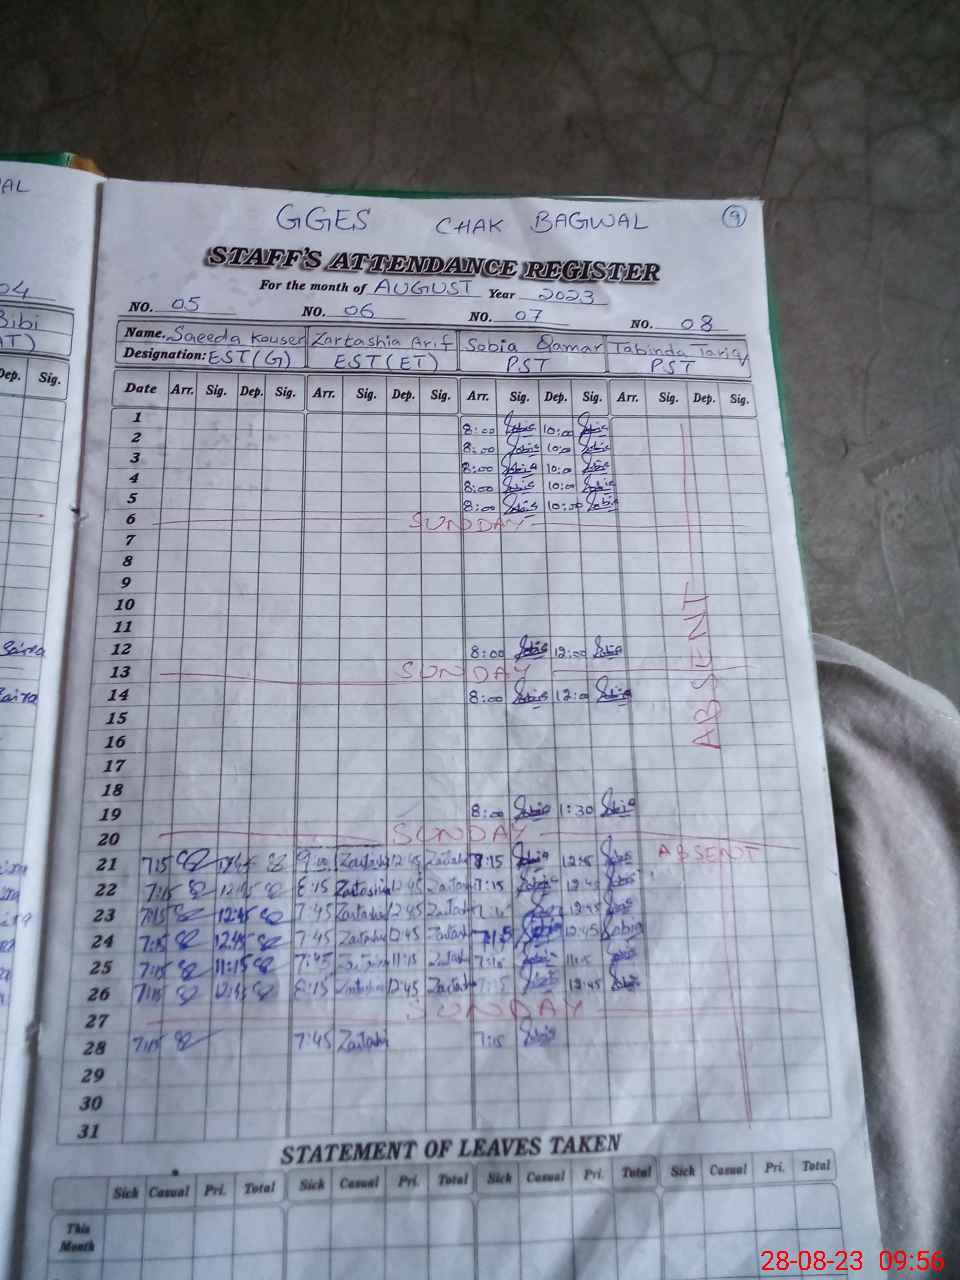 AL
GGES CHAK BAGWAL 9
STAFF'S ATTENDANCE REGISTER
For the month of AUGUST Year 2023
04
NO. 05 NO. 06 NO. 07 NO. 08
Bibi
Name. Saeeda Kouser Zartashia Arif Sobia Qamar Tabinda Tariq
Designation: EST(G) EST(ET) PST PST
Dep. Sig.
Date Arr. Sig. Dep. Sig. Arr. Sig. Dep. Sig. Arr. Sig. Dep. Sig. Arr. Sig. Dep. Sig.
1 8:00 Sobia 10:00 Sobia
2 8:00 Sobia 10:00 Sobia
3 8:00 Sobia 10:00 Sobia
4 8:00 Sobia 10:00 Sobia
5 8:00 Sobia 10:00 Sobia
6 SUNDAY
7
8
9
10
11
12 8:00 Sobia 12:00 Sobia
13 SUNDAY
ABSENT
14 8:00 Sobia 12:00 Sobia
15
16
17
18
19 8:00 Sobia 1:30 Sobia
20 SUNDAY
21 7:15 12:45 Zartashia 12:45 Zartashia 7:15 Sobia 12:45 Sobia ABSENT
22 7:15 12:45 8:15 Zartashia 12:45 Zartashia 7:15 Sobia 12:45 Sobia
23 7:15 12:45 7:45 Zartashia 12:45 Zartashia 7:15 12:45 Sobia
24 7:15 12:45 7:45 Zartashia 12:45 Zartashia 7:15 Sobia 12:45 Sobia
25 7:15 11:15 7:45 Zartashia 11:15 Zartashia 7:15 Sobia 11:15 Sobia
26 7:15 12:45 8:15 Zartashia 12:45 Zartashia 7:15 Sobia 12:45 Sobia
27 SUNDAY
28 7:15 7:45 Zartashia 7:15 Sobia
29
30
31
STATEMENT OF LEAVES TAKEN
Sick Casual Pri. Total Sick Casual Pri. Total Sick Casual Pri. Total Sick Casual Pri. Total
This
Month
28-08-23 09:56